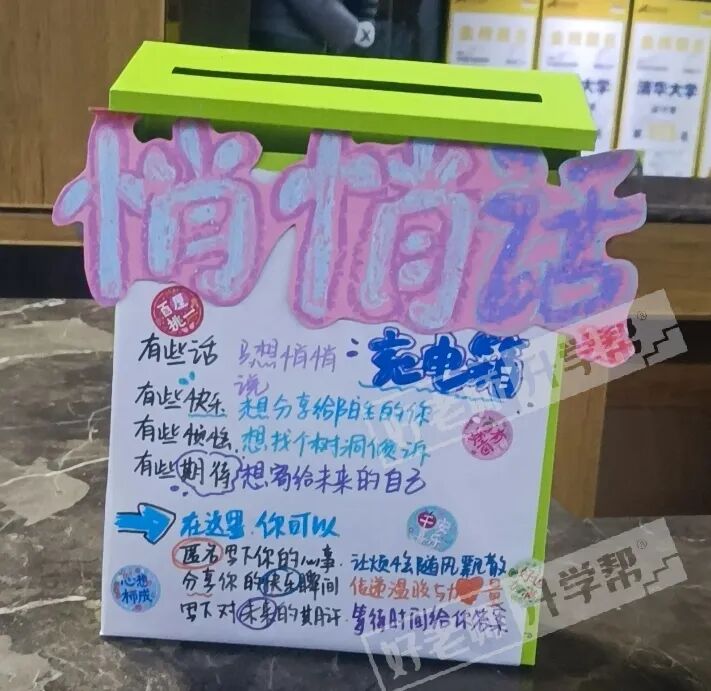 清华大学
清华大学
悄悄话
百里
挑一
充电箱
有些话 只想悄悄说
有些快乐 想分享给陌生的你
有些烦恼 想找个树洞倾诉
有些期待 想寄给未来的自己
在这里,你可以
匿名写下你的心事,让烦恼随风飘散
分享你的快乐瞬间 传递温暖与量
写下对未来的期许,等待时间给你答案
心想
柿成
好老师升学帮
好老师升学帮